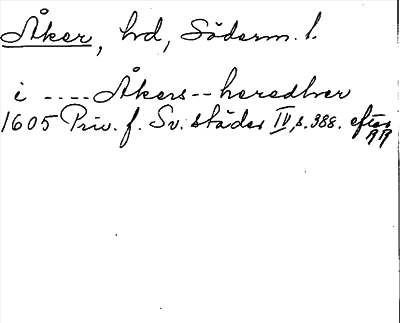 Åker, hd, Söderm. l.
i ---- Åkers -- heredher
1605 Priv. f. Sv. städer IV, s. 388. efter
RA